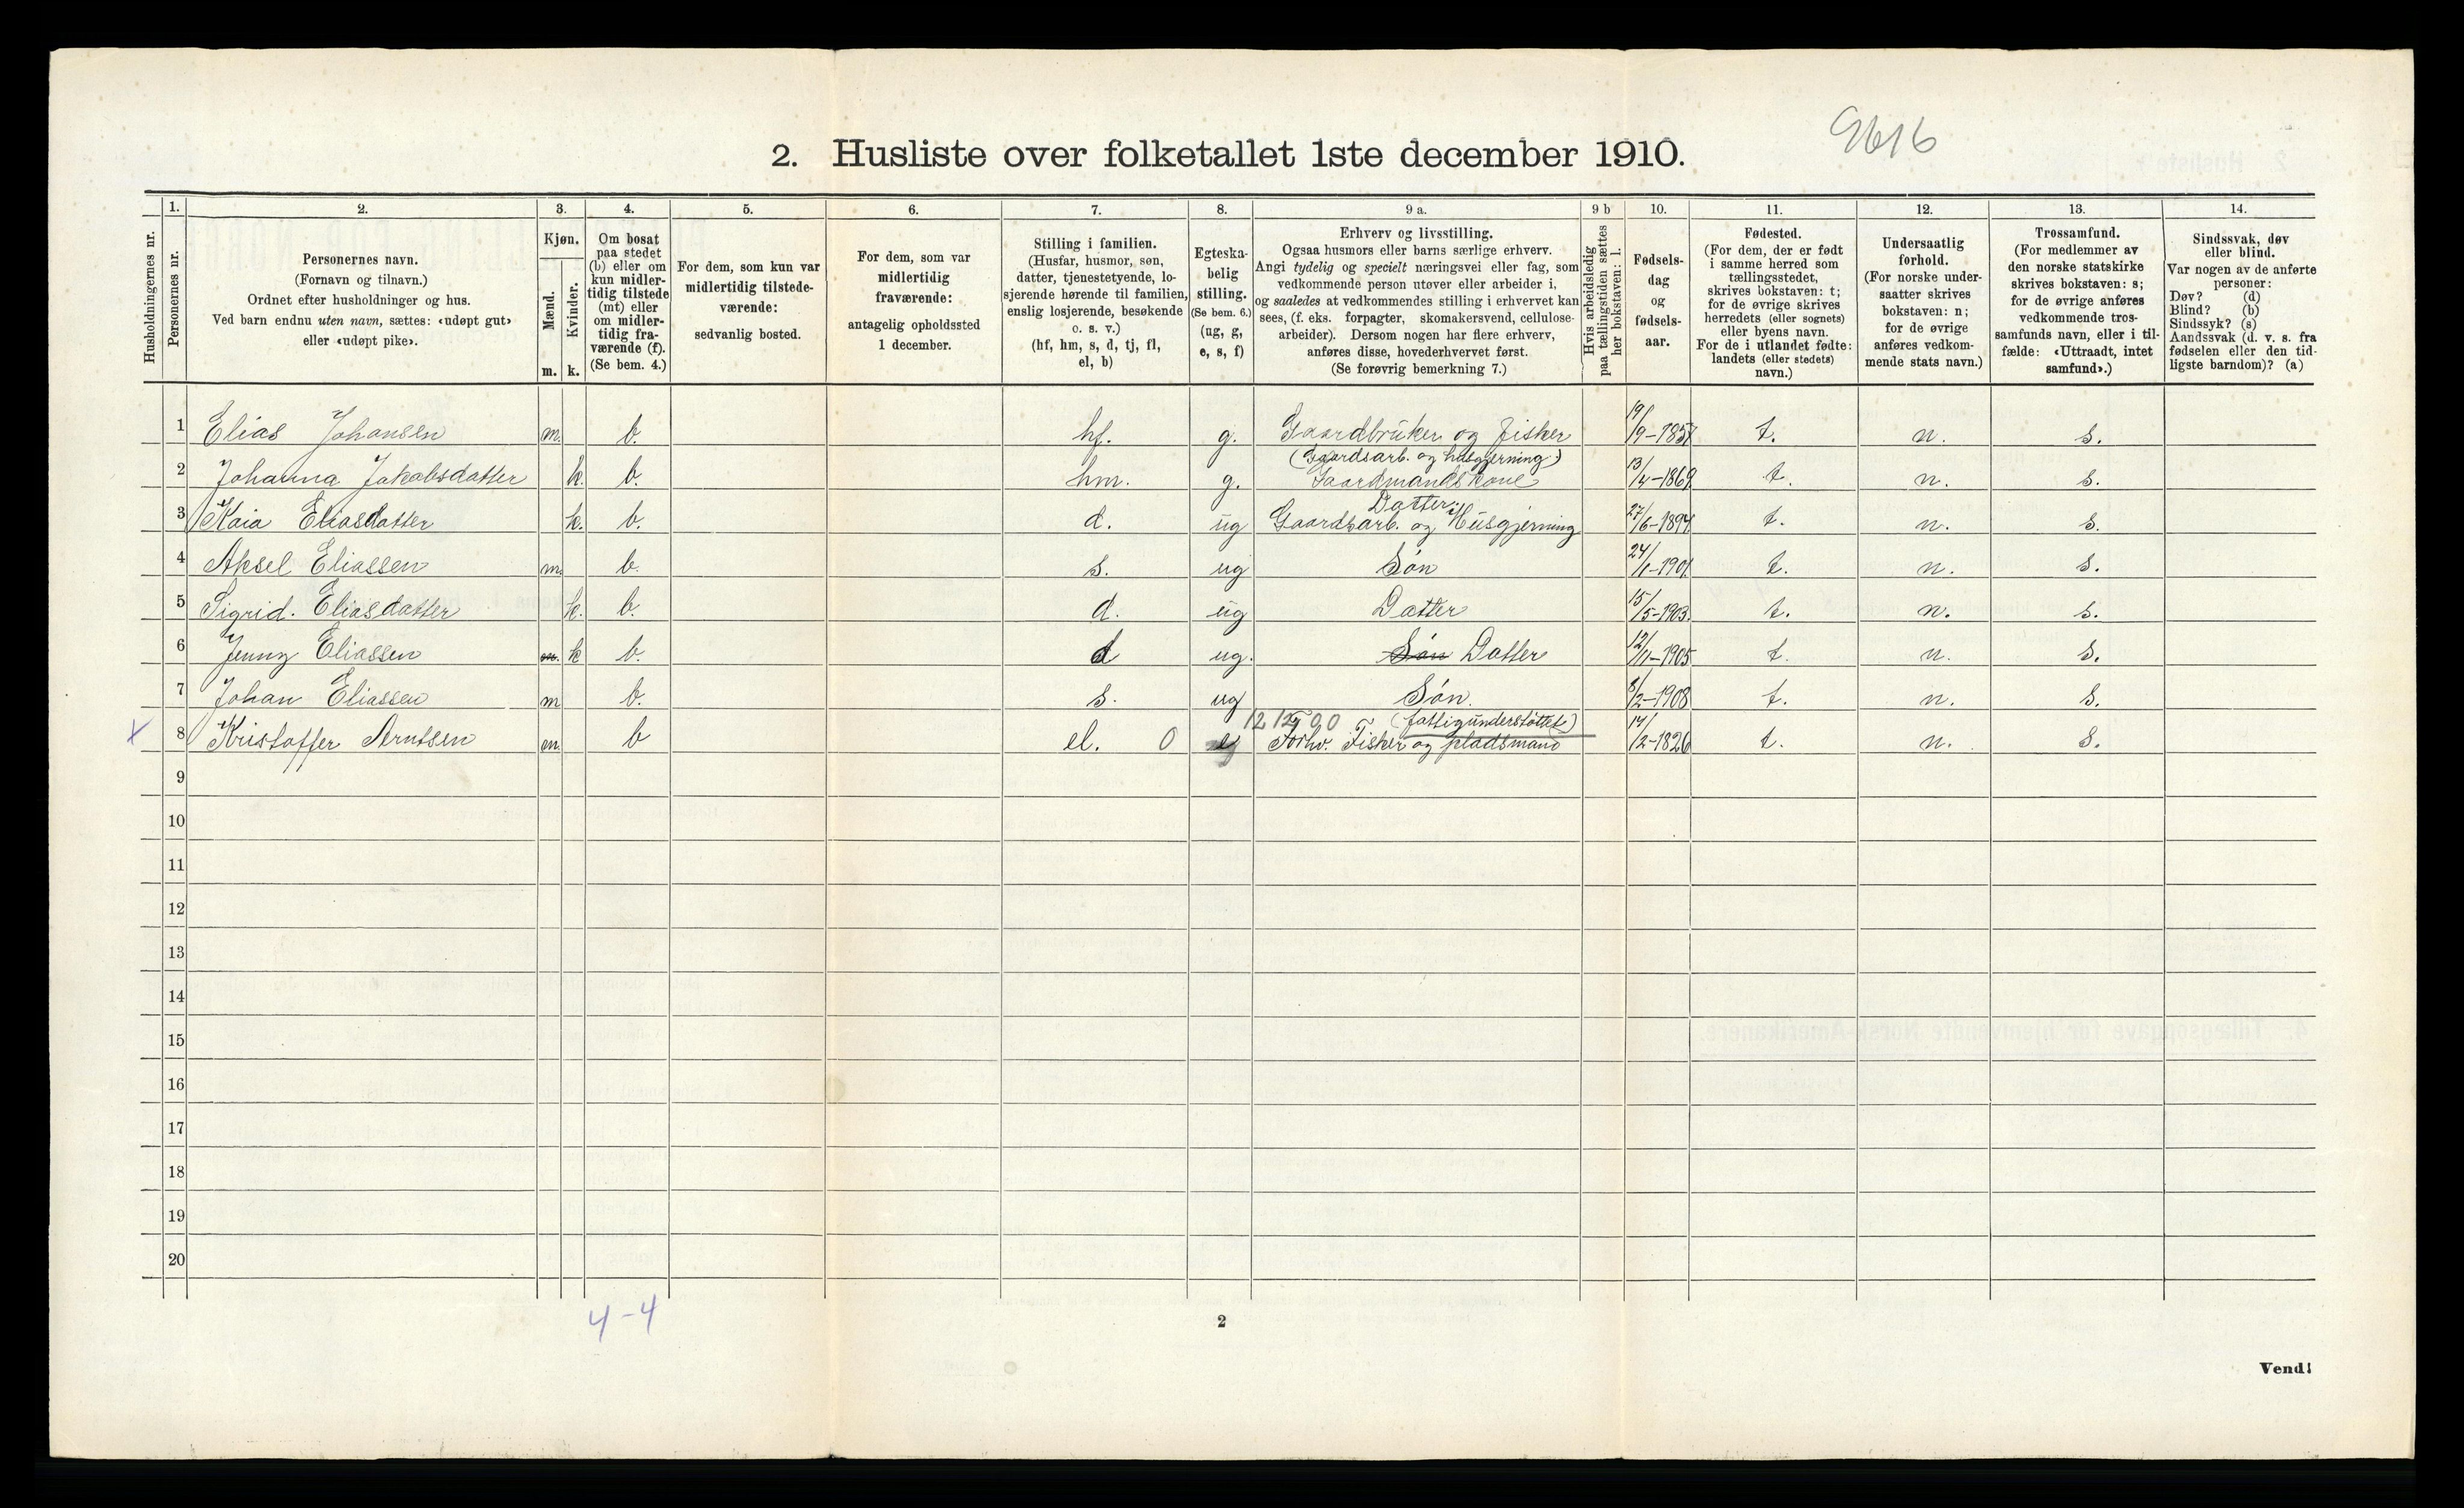 9616
2. Husliste over folketallet 1ste december 1910.
1. 2. 3. 4. 5. 6. 7. 8. 9 a. 9 b 10. 11. 12. 13. 14.
Husholdningernes nr.
Personernes nr.
Personernes navn.
(Fornavn og tilnavn.)
Ordnet efter husholdninger og hus.
Ved barn endnu uten navn, sættes: «udøpt gut»
eller «udøpt pike».
Kjøn.
Mænd.
Kvinder.
m. k.
Om bosat
paa stedet
(b) eller om
kun midler-
tidig tilstede
(mt) eller
om midler-
tidig fra-
værende (f).
(Se bem. 4.)
For dem, som kun var
midlertidig tilstede-
værende:
sedvanlig bosted.
For dem, som var
midlertidig
fraværende:
antagelig opholdssted
1 december.
Stilling i familien.
(Husfar, husmor, søn,
datter, tjenestetyende, lo-
sjerende hørende til familien,
enslig losjerende, besøkende
o. s. v.)
(hf, hm, s, d, tj, fl,
el, b)
Egteska-
belig
stilling.
(Se bem. 6.)
(ug, g,
e, s, f)
Erhverv og livsstilling.
Ogsaa husmors eller barns særlige erhverv.
Angi tydelig og specielt næringsvei eller fag, som
vedkommende person utøver eller arbeider i,
og saaledes at vedkommendes stilling i erhvervet kan
sees, (f. eks. forpagter, skomakersvend, cellulose-
arbeider). Dersom nogen har flere erhverv,
anføres disse, hovederhvervet først.
(Se forøvrig bemerkning 7.)
Hvis arbeidsledig
paa tællingstiden sættes
her bokstaven: l.
Fødsels-
dag
og
fødsels-
aar.
Fødested.
(For dem, der er født
i samme herred som
tællingsstedet,
skrives bokstaven: t;
for de øvrige skrives
herredets (eller sognets)
eller byens navn.
For de i utlandet fødte:
landets (eller stedets)
navn.)
Undersaatlig
forhold.
(For norske under-
saatter skrives
bokstaven: n;
for de øvrige
anføres vedkom-
mende stats navn.)
Trossamfund.
(For medlemmer av
den norske statskirke
skrives bokstaven: s;
for de øvrige anføres
vedkommende tros-
samfunds navn, eller i til-
fælde: «Uttraadt, intet
samfund».)
Sindssvak, døv
eller blind.
Var nogen av de anførte
personer:
Døv? (d)
Blind? (b)
Sindssyk? (s)
Aandssvak (d. v. s. fra
fødselen eller den tid-
ligste barndom)? (a)
1 Elias Johansen m. b. hf. g. Gaardbruker og fisker 19/9-1857 t. n. s.
(Gaardsarb. og husgjerning)
2 Johanna Jakobsdatter k. b. hm. g. Gaardmandskone 13/4-1869 t. n. s.
Datter i
3 Kaia Eliasdatter k. b. d. ug Gaardsarb. og Husgjerning 27/6-1894 t. n. s.
4 Aksel Eliassen m. b. s. ug Søn 24/1-1901 t. n. s.
5 Sigrid. Eliasdatter k. b. d. ug Datter 15/5-1903. t. n. s.
6 Jenny Eliassen m. k b. d ug. Søn Datter 12/11-1905 t. n. s.
7 Johan Eliassen m b. s. ug Søn. 8/2-1908 t. n. s.
12 12 00 (fattigunderstøttet)
X 8 Kristoffer Arntsen m b el. 0 Forhv. Fisker og pladsmand 14/2-1826 t. n. s.
9
10
11
12
13
14
15
16
17
18
19
20
4-4
2
Vend!